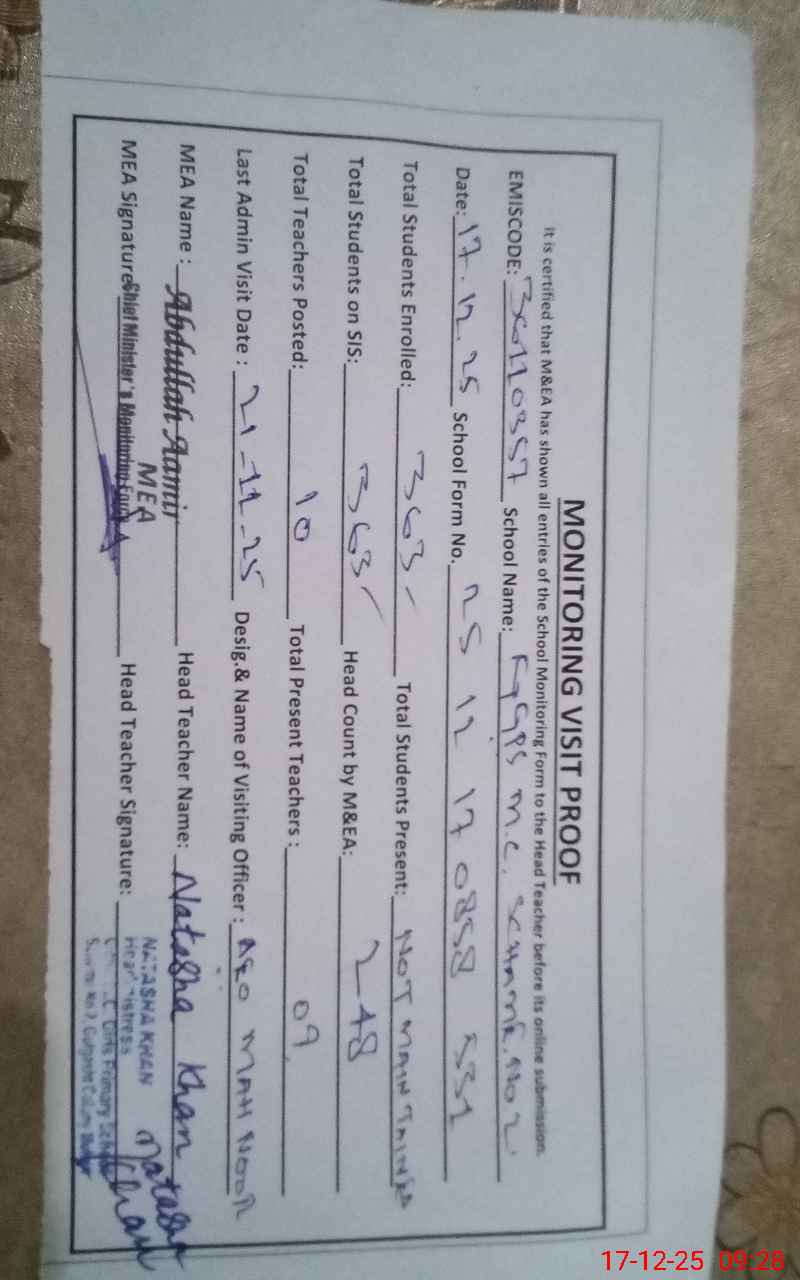 MONITORING VISIT PROOF
It is certified that M&EA has shown all entries of the School Monitoring Form to the Head Teacher before its online submission.
EMISCODE: 36110357 School Name: GGPS M.C. SCHEME. NO 2
Date: 17.12.25 School Form No. 25 12 17 0858 531
Total Students Enrolled: 363 Total Students Present: NOT MAINTAINED
Total Students on SIS: 363 Head Count by M&EA: 248
Total Teachers Posted: 10 Total Present Teachers : 09
Last Admin Visit Date : 21-11-25 Desig.& Name of Visiting Officer : AEO MAH NOOR
MEA Name : Abdullah Aamir Head Teacher Name: Natasha Khan
MEA
MEA Signature Chief Minister's Monitoring Force Head Teacher Signature: Natasha Khan
NATASHA KHAN
Head Mistress
Girls Primary School
No 2, Colony
17-12-25 09:28